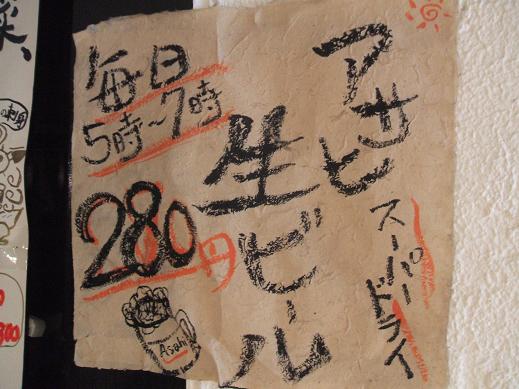 アサヒ
スーパードライ
生ビール
毎日
5時~7時
280円
Asahi
菜、